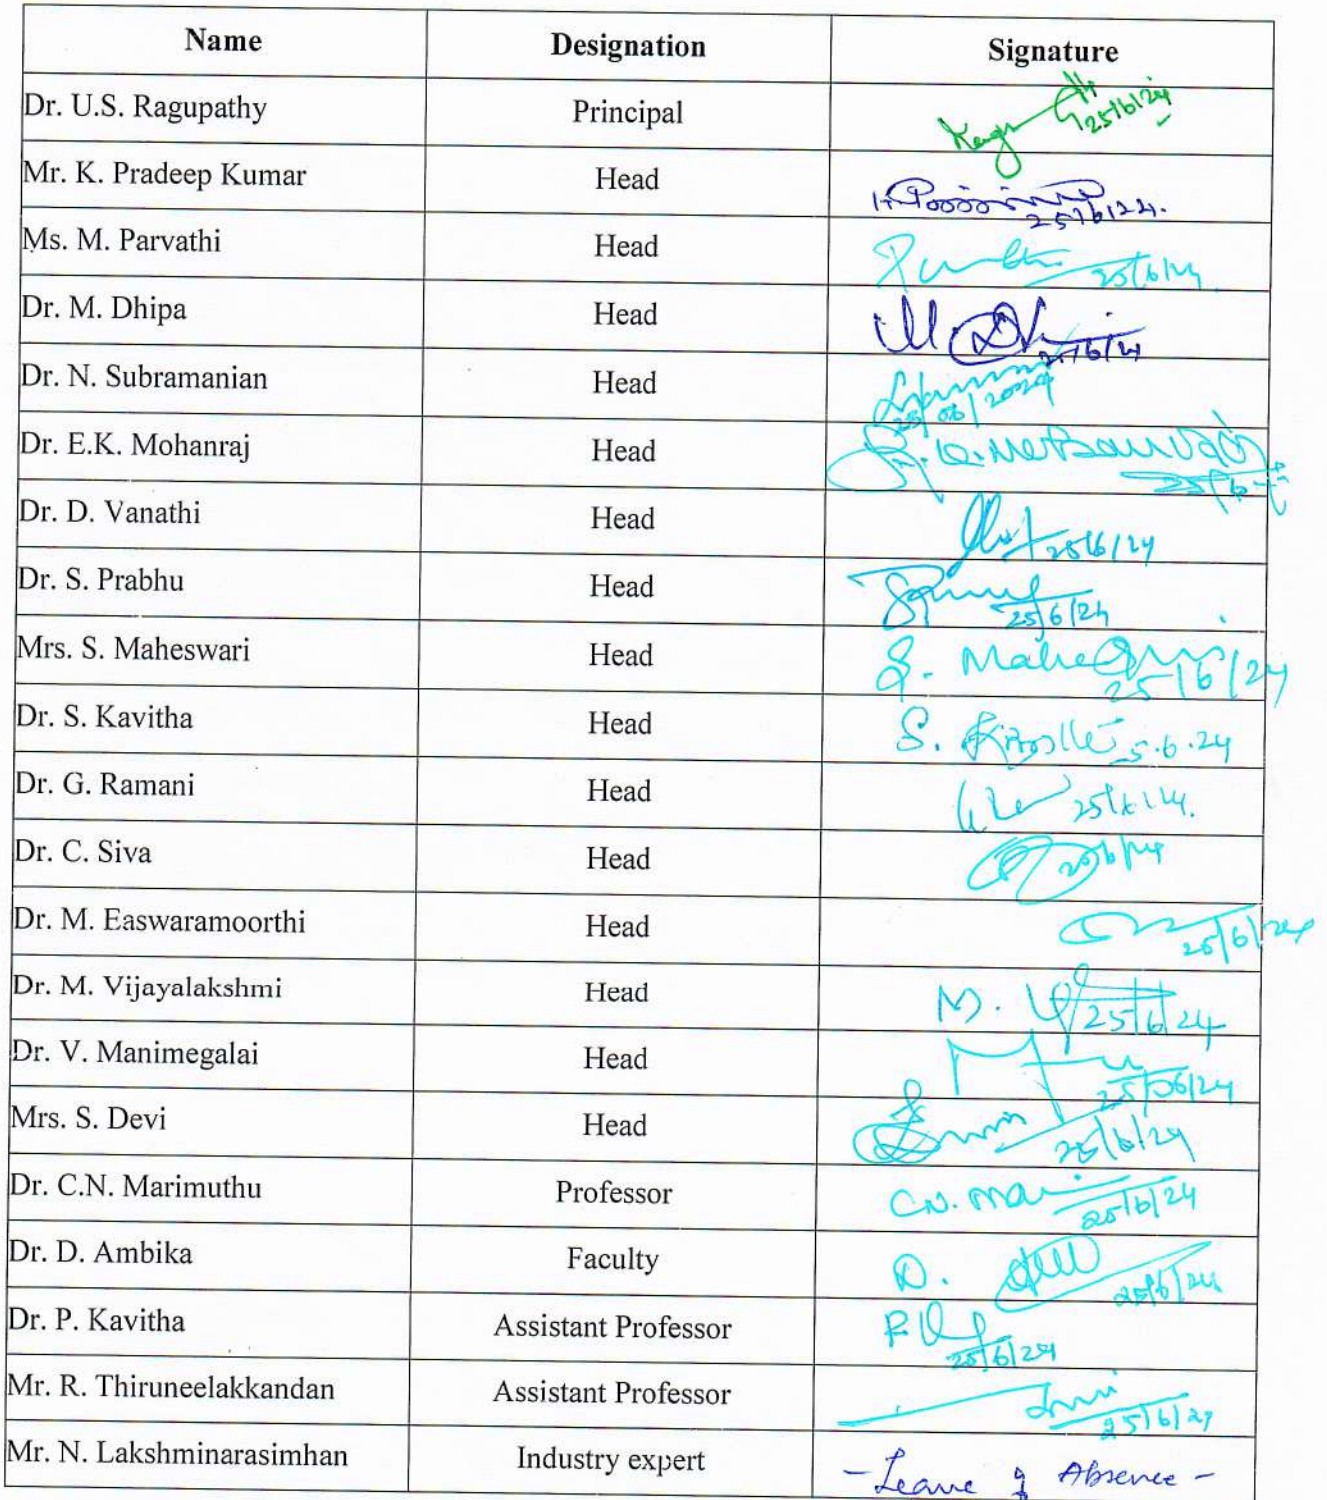 Name Designation Signature
Dr. U.S. Ragupathy Principal 25/6/24
Mr. K. Pradeep Kumar Head 25/6/24.
Ms. M. Parvathi Head 25/6/24
Dr. M. Dhipa Head 25/6/24
Dr. N. Subramanian Head 25/06/2024
Dr. E.K. Mohanraj Head
Dr. D. Vanathi Head 25/6/24
Dr. S. Prabhu Head 25/6/24
Mrs. S. Maheswari Head S. 25/6/24
Dr. S. Kavitha Head S.
Dr. G. Ramani Head
Dr. C. Siva Head
Dr. M. Easwaramoorthi Head 25/6/24
Dr. M. Vijayalakshmi Head M. 25/6/24
Dr. V. Manimegalai Head 25/06/24
Mrs. S. Devi Head 25/6/24
Dr. C.N. Marimuthu Professor 25/6/24
Dr. D. Ambika Faculty D. 25/6/24
Dr. P. Kavitha Assistant Professor 25/6/24
Mr. R. Thiruneelakkandan Assistant Professor 25/6/24
Mr. N. Lakshminarasimhan Industry expert - Leave of Absence -